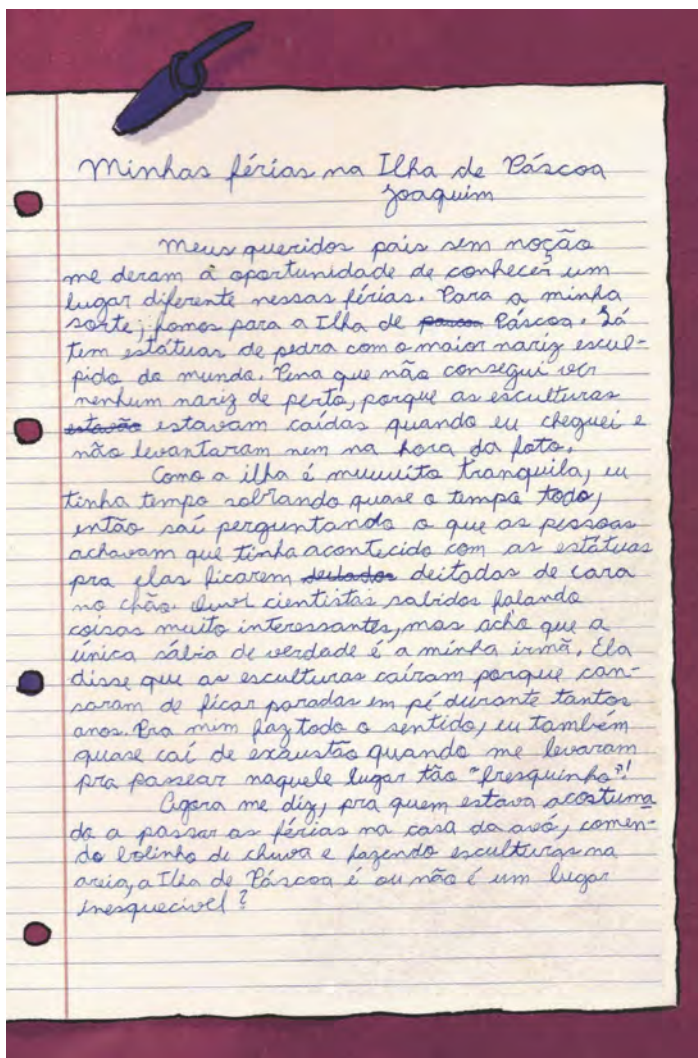 Minhas férias na Ilha de Páscoa
Joaquim
Meus queridos pais sem noção
me deram a oportunidade de conhecer um
lugar diferente nessas férias. Para a minha
sorte, fomos para a Ilha de pascoa Páscoa. Lá
tem estátuas de pedra com o maior nariz escul-
pido do mundo. Pena que não consegui ver
nenhum nariz de perto, porque as esculturas
estavão estavam caídas quando eu cheguei e
não levantaram nem na hora da foto.
Como a ilha é muuuito tranquila, eu
tinha tempo sobrando quase o tempo todo,
então saí perguntando o que as pessoas
achavam que tinha acontecido com as estátuas
pra elas ficarem deitados deitadas de cara
no chão. Ouvi cientistas sabidos falando
coisas muito interessantes, mas acho que a
única sábia de verdade é a minha irmã. Ela
disse que as esculturas caíram porque can-
saram de ficar paradas em pé durante tantos
anos. Pra mim faz todo o sentido, eu também
quase caí de exaustão quando me levaram
pra passear naquele lugar tão "fresquinho"!
Agora me diz, pra quem estava acostuma
do a passar as férias na casa da avó, comen-
do bolinho de chuva e fazendo esculturas na
areia, a Ilha de Páscoa é ou não é um lugar
inesquecível?